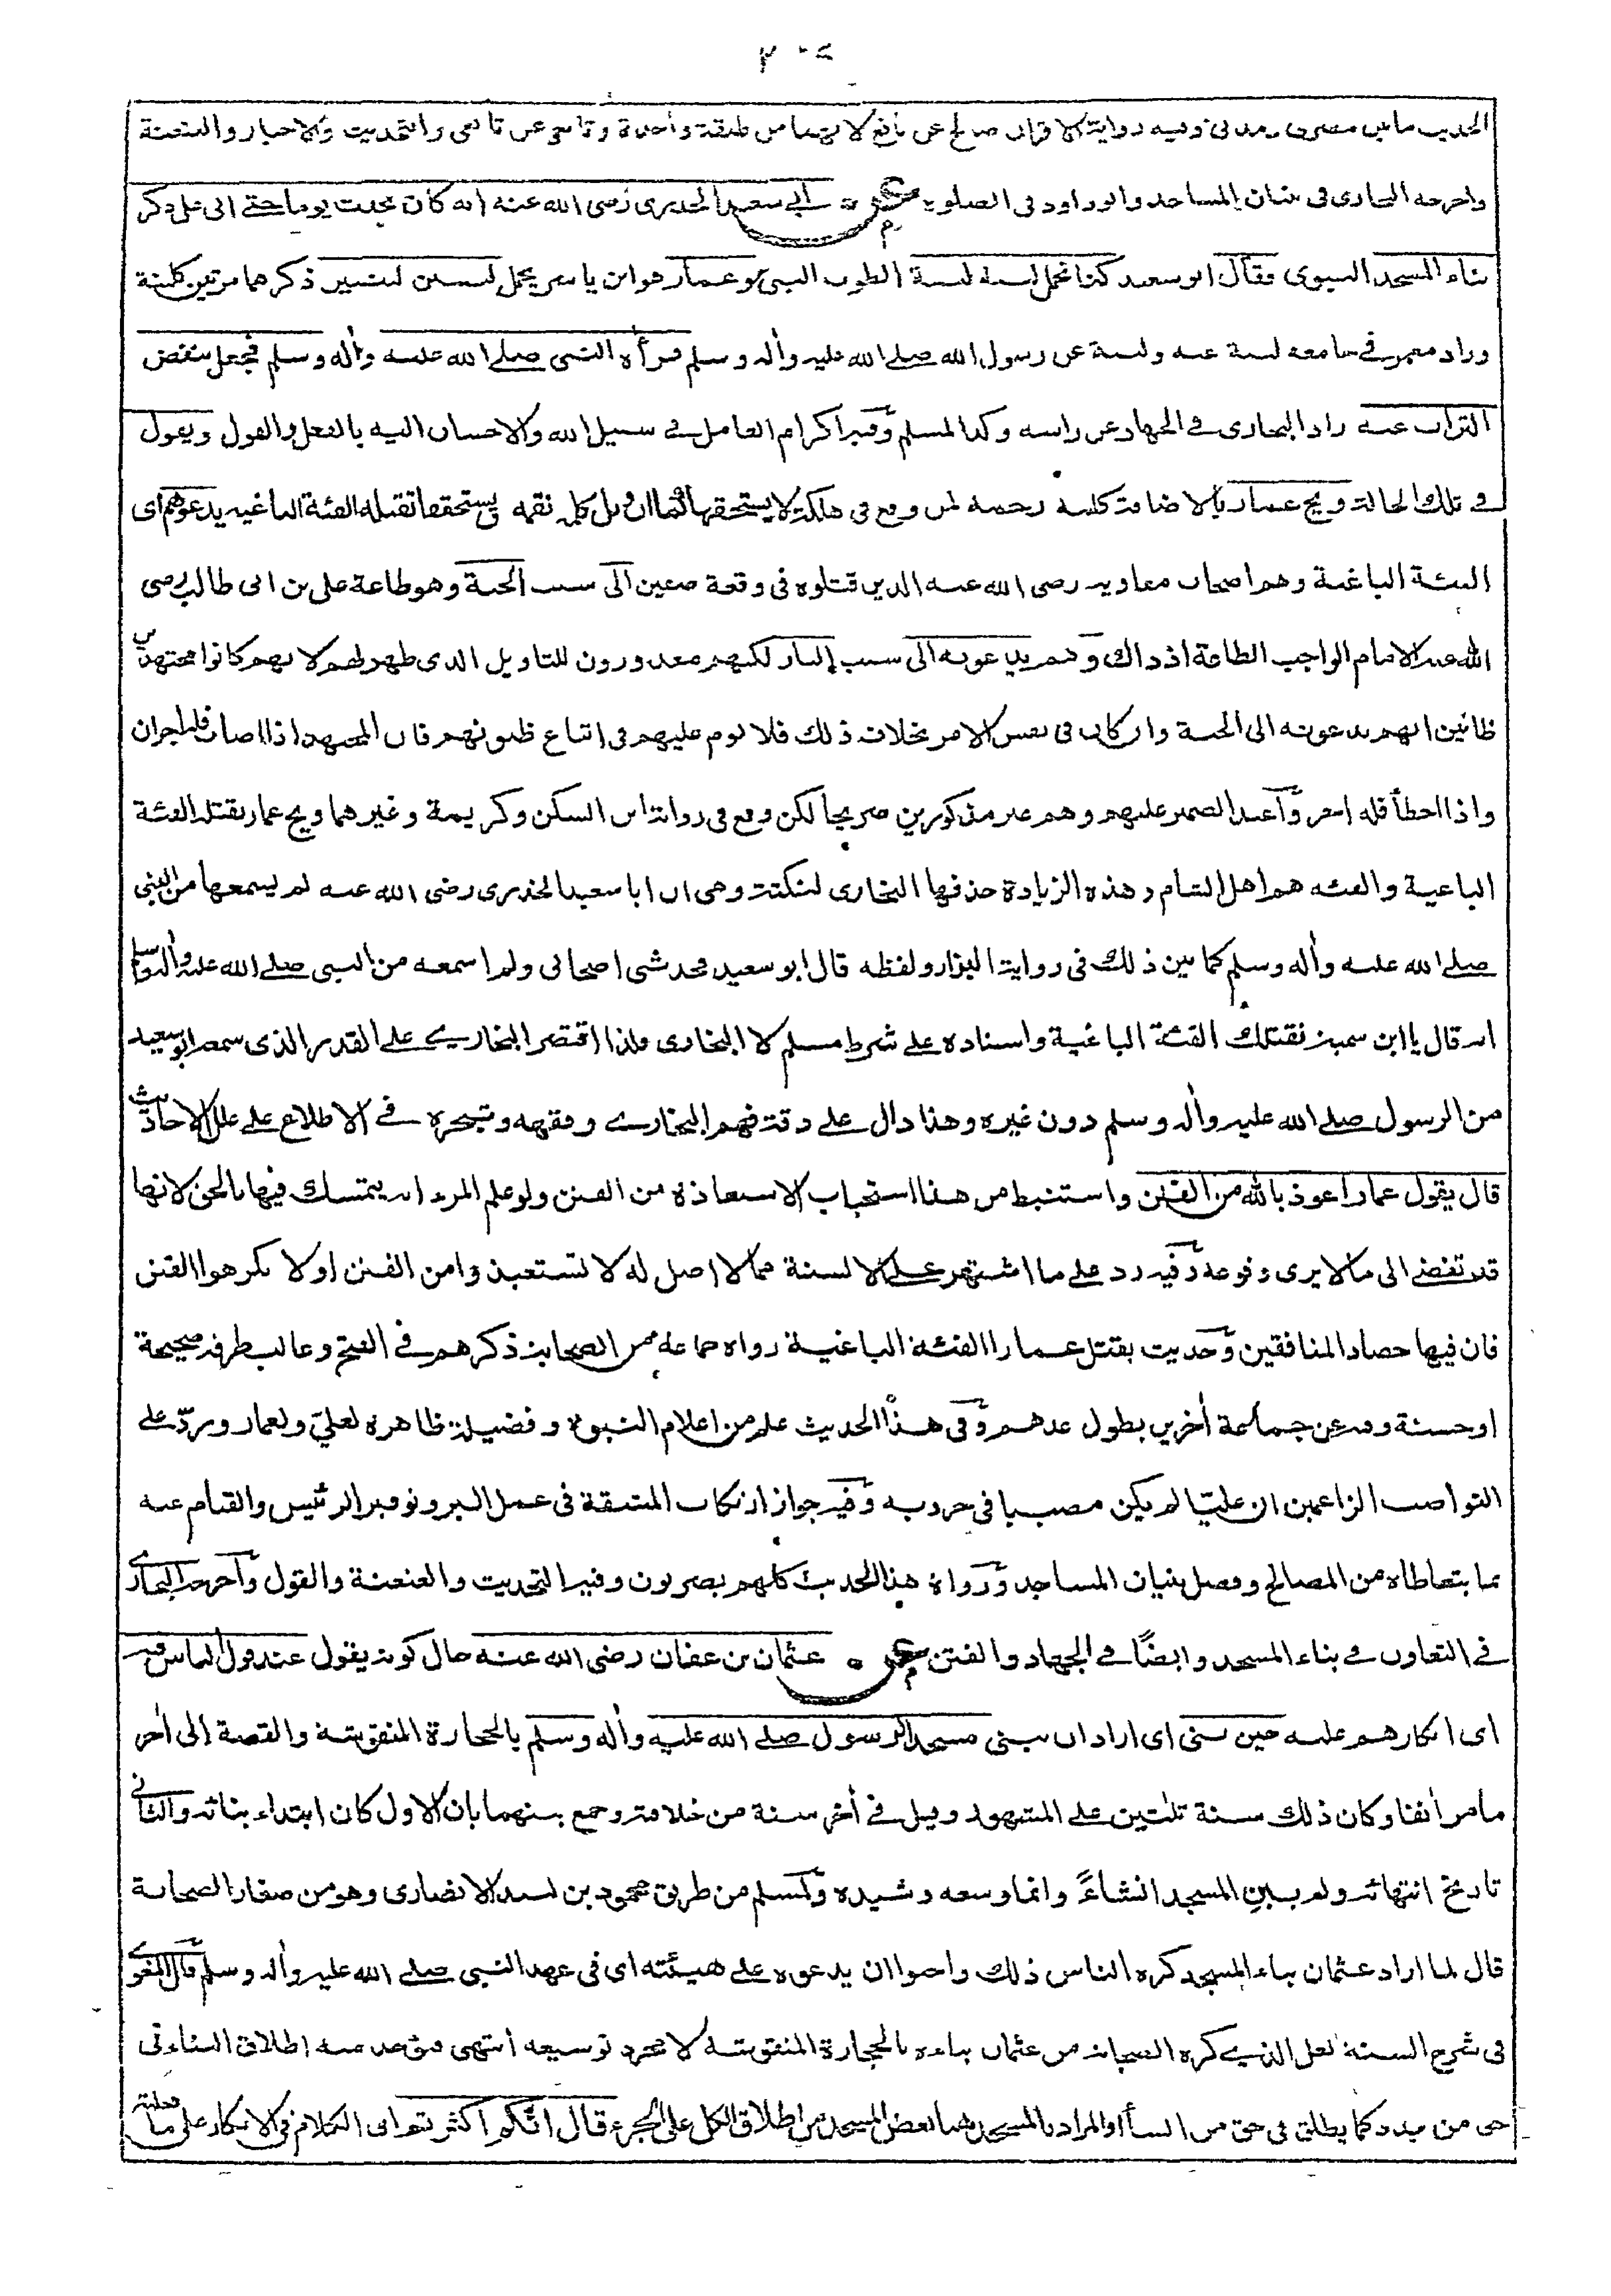 الحديث ما بين مصرى ومدنى وفيه رواية الاقران صالح عن نافع لانهما من طبقة واحدة وتابعى عن تابعى والتحديث والاخبار والعنعنة
واخرجه البخارى فى بنيان المساجد وابو داود فى الصلوة عن ابى سعيد الخدرى رضى الله عنه انه كان يحدث يوما حتى اتى على ذكر
بناء المسجد النبوى فقال ابو سعيد كنا نحمل لبنة لبنة الطوب النبئ وعمار هو ابن ياسر يحمل لبنتين لبنتين ذكرهما مرتين كلبنة
وزاد معمر فى جامعه لبنة عنه ولبنة عن رسول الله صلى الله عليه وأله وسلم فرأه النبى صلى الله عليه وأله وسلم فجعل ينفض
التراب عنه زاد البخارى فى الجهاد عن راسه وكذا لمسلم وفيه اكرام العامل فى سبيل الله والاحسان اليه بالفعل والقول ويقول
فى تلك الحالة ويح عمار بالاضافة كلمة رحمة لمن وقع فى هلكة لا يستحقها كما ان ويل كلمة نقمة لمن يستحقها تقتله الفئة الباغية يدعوهم اى
الفئة الباغية وهم اصحاب معاوية رضى الله عنه الذين قتلوه فى وقعة صفين الى سبب الجنة وهو طاعة على بن ابى طالب رضى
الله عنه الامام الواجب الطاعة اذ ذاك وهم يدعونه الى سبب النار لكنهم معذورون للتاويل الذى ظهر لهم لانهم كانوا مجتهدين
ظانين انهم يدعونه الى الجنة وان كان فى نفس الامر بخلاف ذلك فلا لوم عليهم فى اتباع ظنونهم فان المجتهد اذا اصاب فله اجران
واذا اخطأ فله اجر واعيد الضمير عليهم وهم غير مذكورين صريحا لكن وقع فى رواية ابن السكن وكريمة وغيرهما ويح عمار تقتله الفئة
الباغية والفئة هم اهل الشام وهذه الزيادة حذفها البخارى لنكتة وهى ان ابا سعيد الخدرى رضى الله عنه لم يسمعها من النبى
صلى الله عليه وأله وسلم كما بين ذلك فى رواية البزار ولفظه قال ابو سعيد فحدثنى اصحابى ولم اسمعه من النبى صلى الله عليه وأله وسلم
انه قال يا ابن سمية تقتلك الفئة الباغية واسناده على شرط مسلم لا البخارى ولذا اقتصر البخارى على القدر الذى سمعه ابو سعيد
من الرسول صلى الله عليه وأله وسلم دون غيره وهذا دال على دقة فهم البخارى وفقهه وتبحره فى الاطلاع على علل الاحاديث
قال يقول عمار اعوذ بالله من الفتن واستنبط من هذا استحباب الاستعاذة من الفتن ولو علم المرء انه يتمسك فيها بالحق لانها
قد تفضى الى ما لا يرى وقوعه وفيه رد على ما اشتهر على الالسنة مما لا اصل له لا تستعيذوا من الفتن او لا تكرهوا الفتن
فان فيها حصاد المنافقين وحديث يقتل عمارا الفئة الباغية رواه جماعة من الصحابة ذكرهم فى الفتح وغالب طرقه صحيحة
او حسنة وفيه عن جماعة أخرين يطول عدهم وفى هذا الحديث علم من اعلام النبوة وفضيلة ظاهرة لعلىّ ولعمار وردّ على
النواصب الزاعمين ان عليّا لم يكن مصيبا فى حروبه وفيه جواز ارتكاب المشقة فى عمل البر وتوقير الرئيس والقيام عنه
بما يتعاطاه من المصالح وفضل بنيان المساجد ورواة هذا الحديث كلهم بصريون وفيه التحديث والعنعنة والقول واخرجه البخارى
فى التعاون فى بناء المسجد وايضًا فى الجهاد والفتن عن عثمان بن عفان رضى الله عنه حال كونه يقول عند قول الناس فيه
اى انكارهم عليه حين بنى اى اراد ان يبنى مسجد الرسول صلى الله عليه وأله وسلم بالحجارة المنقوشة والقصة الى أخر
ما مر أنفا وكان ذلك سنة ثلثين على المشهور وقيل فى أخر سنة من خلافته وجمع بينهما بان الاول كان ابتداء بنائه والثانى
تاريخ انتهائه ولم يبن المسجد انشاءً وانما وسعه وشيده ولمسلم من طريق محمود بن لبيد الانصارى وهو من صغار الصحابة
قال لما اراد عثمان بناء المسجد كره الناس ذلك واحبوا ان يدعوه على هيئته اى فى عهد النبى صلى الله عليه وأله وسلم قال البغوى
فى شرح السنة لعل الذى كره الصحابة من عثمان بناءه بالحجارة المنقوشة لا مجرد توسيعه انتهى فيؤخذ منه اطلاق البناء فى
حق من جدد كما يطلق فى حق من انشأ او المراد بالمسجد هنا بعض المسجد من اطلاق الكل على الجزء قال انكم اكثرتم اى الكلام فى الانكار على ما فعلته